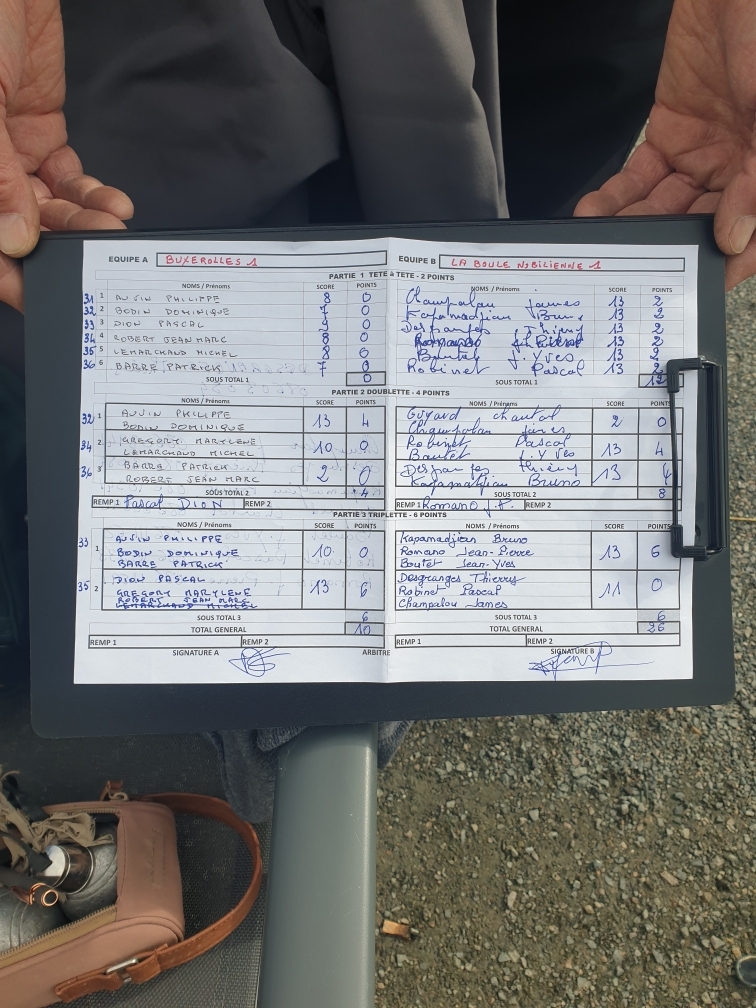 EQUIPE A BUXEROLLES 1 EQUIPE B LA BOULE NOBILIENNE 1
PARTIE 1 TETE à TETE - 2 POINTS
NOMS / Prénoms SCORE POINTS NOMS / Prénoms SCORE POINTS
31 1 AUVIN PHILIPPE 8 0 Champalou James 13 2
32 2 BODIN DOMINIQUE 7 0 Kapamadjian Bruno 13 2
33 3 DION PASCAL 9 0 Desgranges Thierry 13 2
34 4 ROBERT JEAN MARC 8 0 Romano J. Pierre 13 2
35 5 LEMARCHAND MICHEL 8 0 Boutet J. Yves 13 2
36 6 BARRE PATRICK 7 0 Robinet Pascal 13 2
SOUS TOTAL 1 0 SOUS TOTAL 1 12
PARTIE 2 DOUBLETTE - 4 POINTS
NOMS / Prénoms SCORE POINTS NOMS / Prénoms SCORE POINTS
32 1 AUVIN PHILIPPE 13 4 Guyard Chantal 2 0
BODIN DOMINIQUE Champalou James
34 2 GREGORY MARYLENE 10 0 Robinet Pascal 13 4
LEMARCHAND MICHEL Boutet J. Yves
36 3 BARRE PATRICK 2 0 Desgranges Thierry 13 4
ROBERT JEAN MARC Kapamadjian Bruno
SOUS TOTAL 2 4 SOUS TOTAL 2 8
REMP 1 Pascal DION REMP 2 REMP 1 Romano J.P. REMP 2
PARTIE 3 TRIPLETTE - 6 POINTS
NOMS / Prénoms SCORE POINTS NOMS / Prénoms SCORE POINTS
33 1 AUVIN PHILIPPE 10 0 Kapamadjian Bruno 13 6
BODIN DOMINIQUE Romano Jean-Pierre
BARRE PATRICK Boutet Jean-Yves
35 2 DION PASCAL 13 6 Desgranges Thierry 11 0
GREGORY MARYLENE Robinet Pascal
ROBERT JEAN MARC Champalou James
LEMARCHAND MICHEL
SOUS TOTAL 3 6 SOUS TOTAL 3 6
TOTAL GENERAL 10 TOTAL GENERAL 26
REMP 1 REMP 2 REMP 1 REMP 2
SIGNATURE A ARBITRE SIGNATURE B